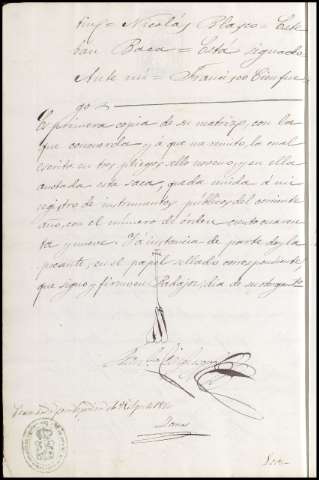 tiz = Nicolás Blasco = Este
ban Baca = Está signado
Ante mí = Francisco Cienfue
gos
Es primera copia de su matriz, con la
que concuerda y á que me remito, la cual
escrita en tres pliegos sello noveno, y en ella
anotada esta saca, queda unida á mi
registro de instrumentos públicos del corriente
año, con el número de órden ciento cuaren
ta y nueve. Y á instancia de parte doy la
presente, en el papel sellado correspondiente,
que signo y firmo en Badajoz, dia de su otorgamto
Francisco Cienfuegos